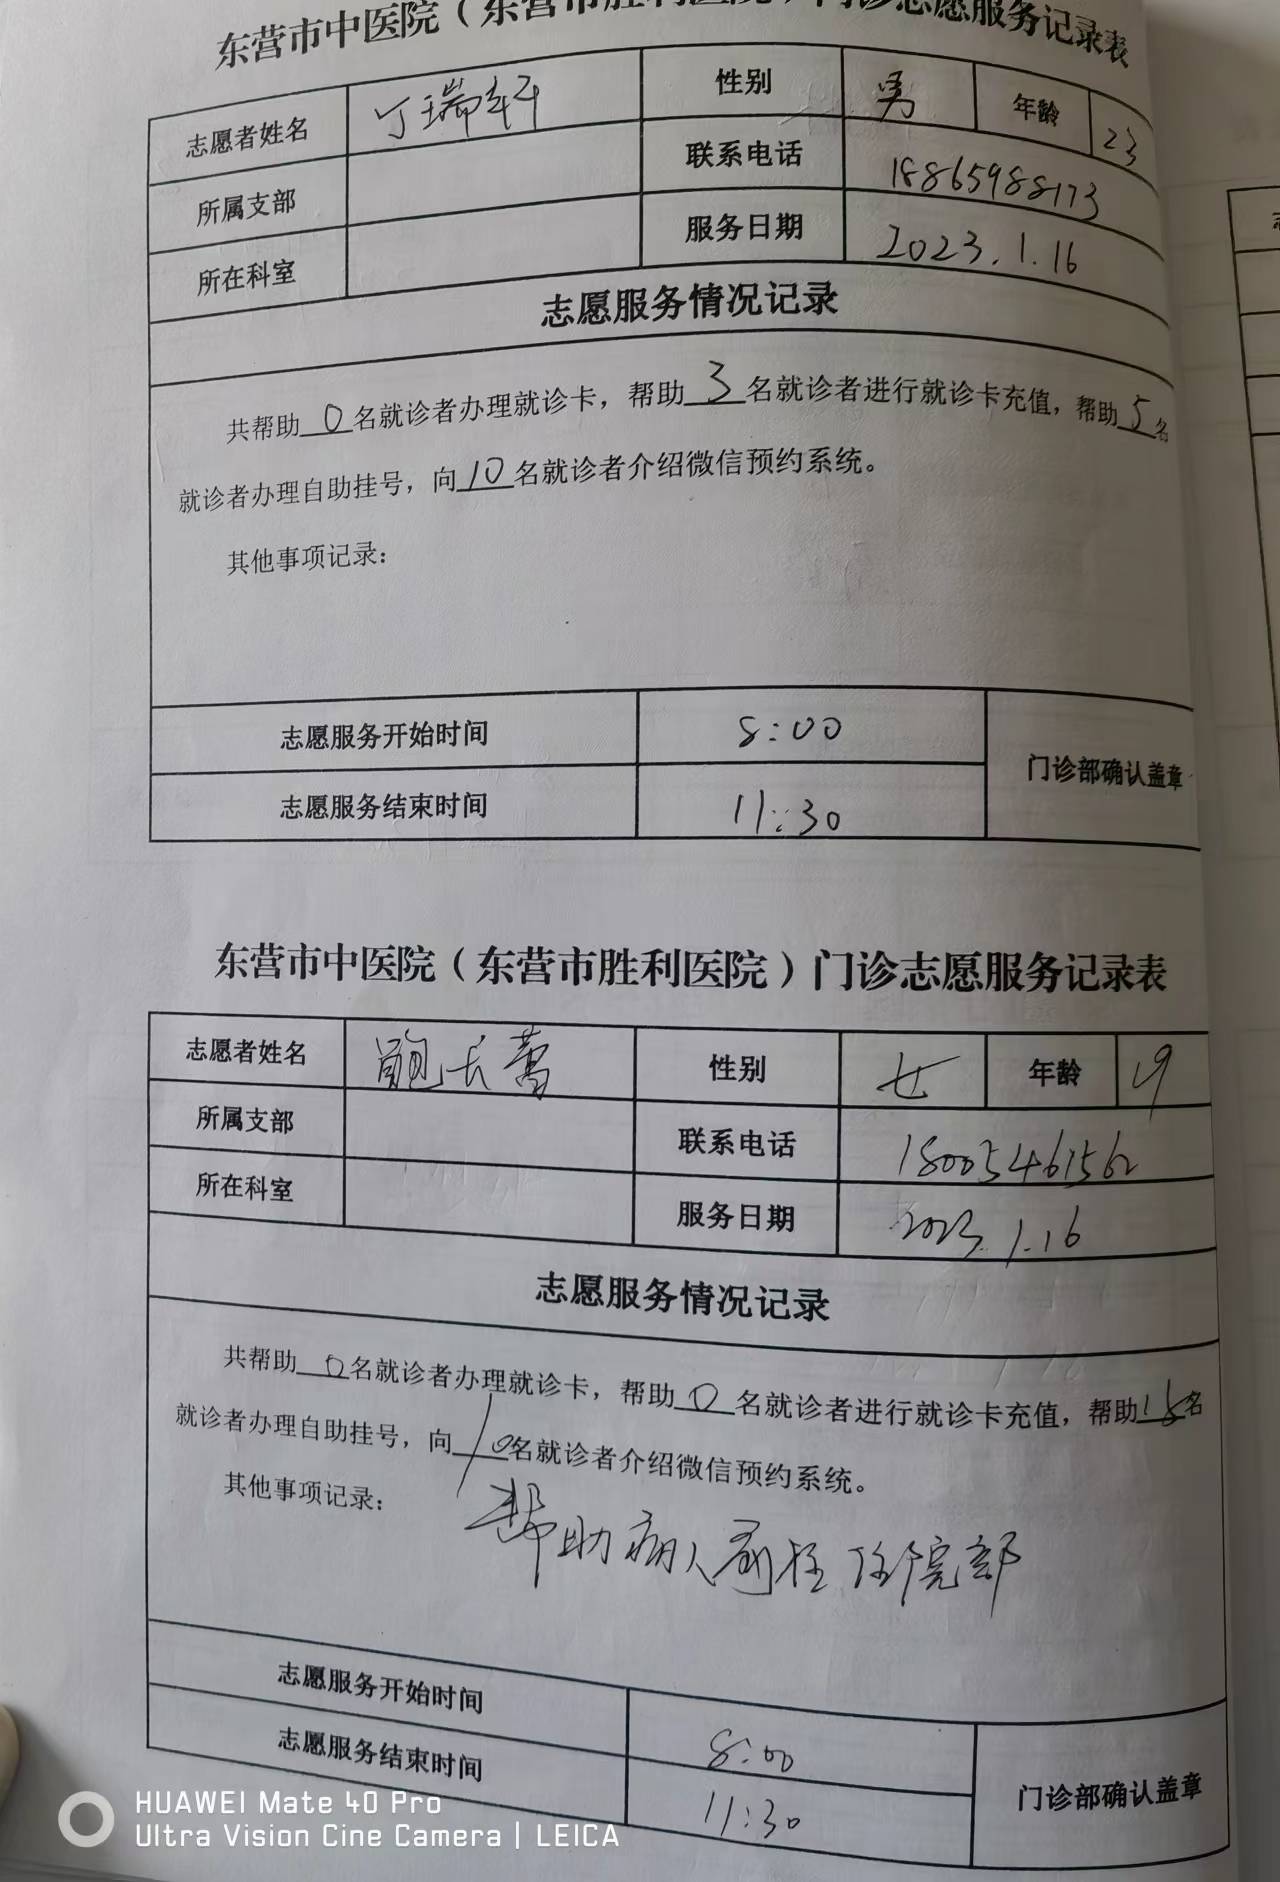 东营市中医院（东营市胜利医院）门诊志愿服务记录表
志愿者姓名 丁瑞轩 性别 男 年龄 23
所属支部 联系电话 18865988173
所在科室 服务日期 2023.1.16
志愿服务情况记录
共帮助0名就诊者办理就诊卡，帮助3名就诊者进行就诊卡充值，帮助5名
就诊者办理自助挂号，向10名就诊者介绍微信预约系统。
其他事项记录：
志愿服务开始时间 8:00
门诊部确认盖章
志愿服务结束时间 11:30
东营市中医院（东营市胜利医院）门诊志愿服务记录表
志愿者姓名 鲍长 性别 女 年龄 19
所属支部 联系电话 18005461562
所在科室 服务日期 2023.1.16
志愿服务情况记录
共帮助0名就诊者办理就诊卡，帮助0名就诊者进行就诊卡充值，帮助15名
就诊者办理自助挂号，向10名就诊者介绍微信预约系统。
其他事项记录：
帮助病人前往住院部
志愿服务开始时间 8:00
志愿服务结束时间 11:30
门诊部确认盖章
HUAWEI Mate 40 Pro
Ultra Vision Cine Camera | LEICA